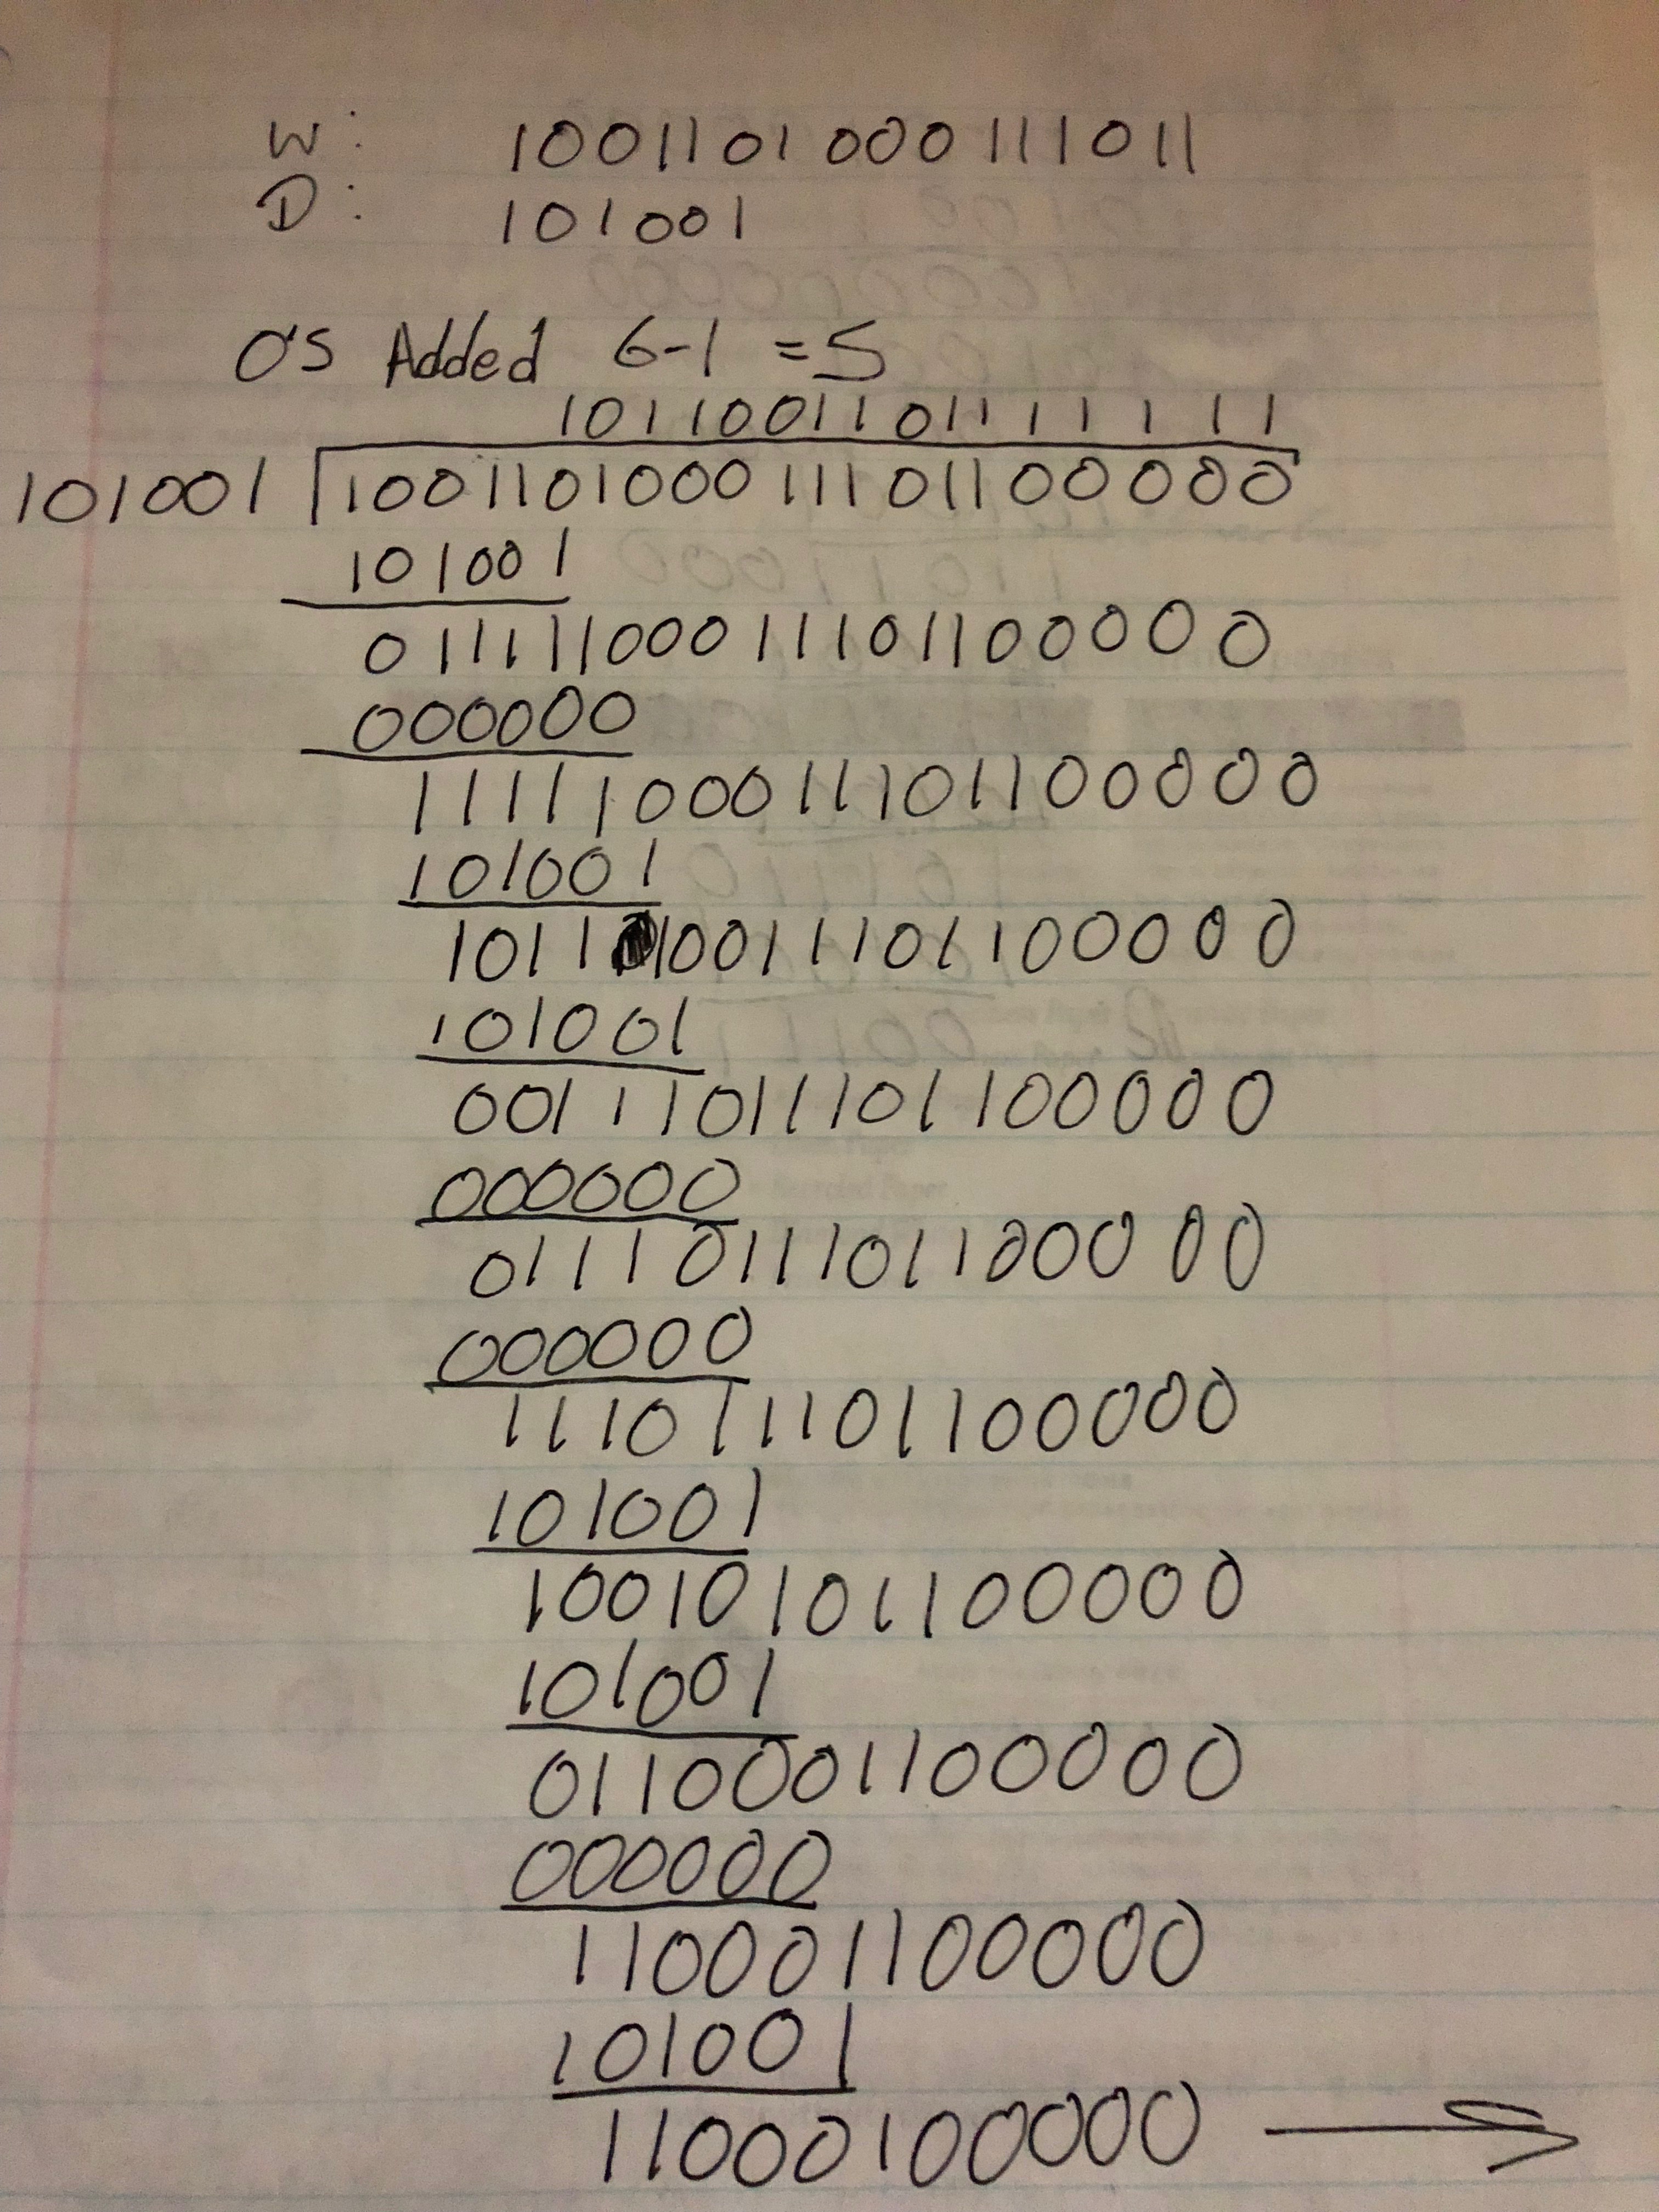 W: 1001101000111011
D: 101001
O's Added 6-1 =5
1011001101111111
101001 100110100011101100000
101001
01111100011101100000
000000
1111100011101100000
101001
101110011101100000
101001
00111011101100000
000000
0111011101100000
000000
111011101100000
101001
10010101100000
101001
0110001100000
000000
110001100000
101001
11000100000 →